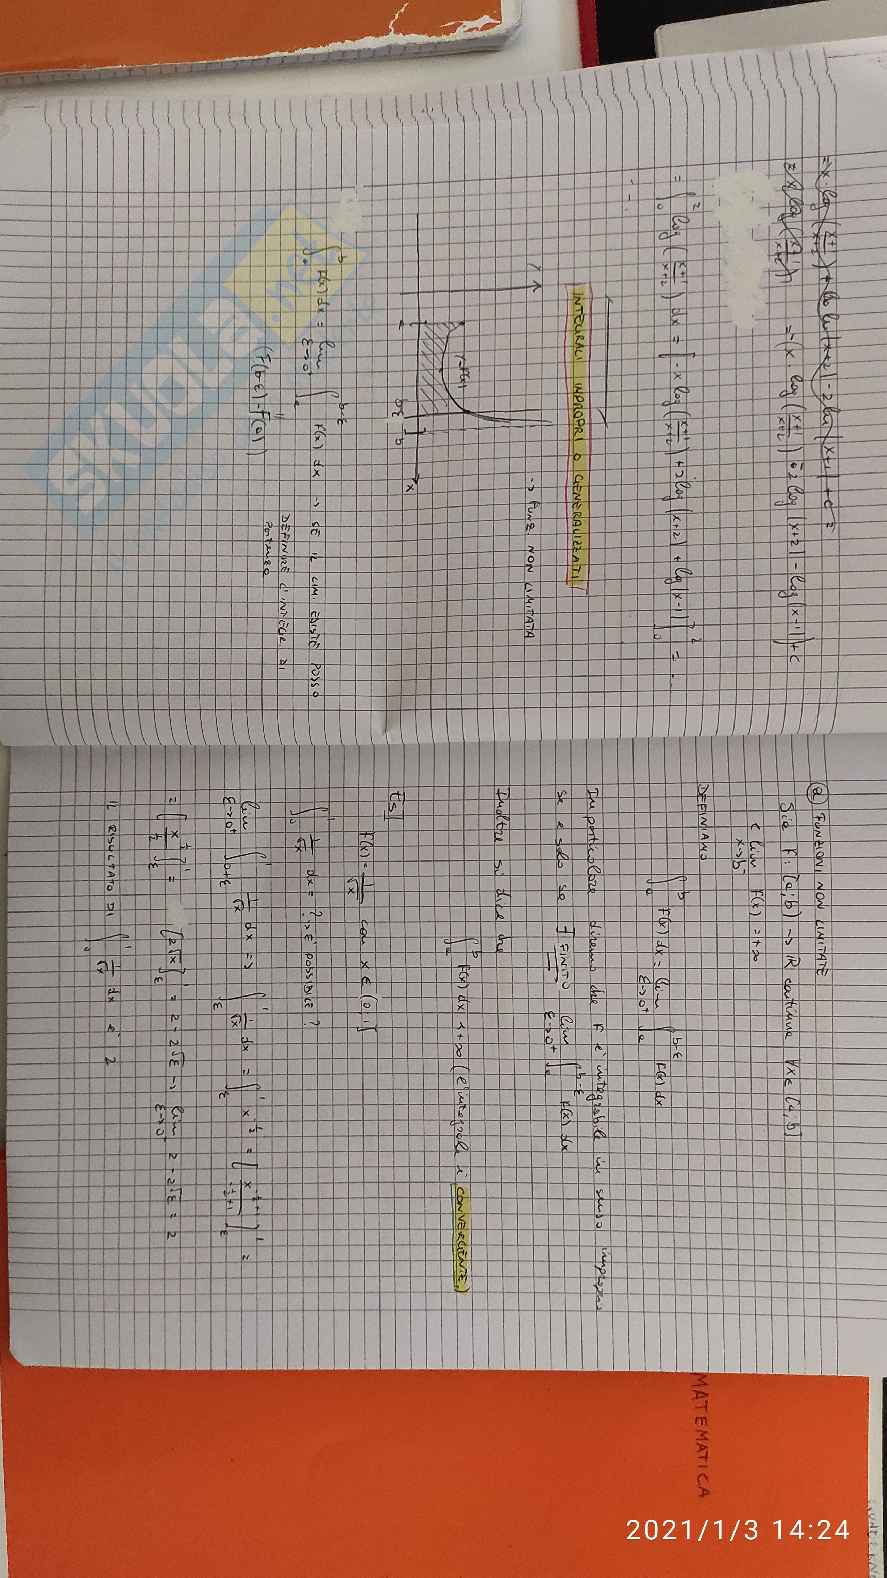 = x log (x+1/x+2) + 2 ln|x+2| - 2 ln|x+1| + c =
= x log (x+1/x+2) = (x log (x+1/x+2) + 2 log |x+2| - log |x-1|) + c
= ∫₀² log (x+1/x+2) dx = [-x log (x+1/x+2) + 2 log |x+2| + log |x-1|]₀² = ...
INTEGRALI IMPROPRI O GENERALIZZATI
-> FUNZ NON LIMITATA
y
y=F(x)
a b-ε b x
∫ₐᵇ F(x) dx = lim ε→0⁺ ∫ₐᵇ⁻ᵋ F(x) dx -> SE IL LIM ESISTE POSSO
DEFINIRE L'INTEGR. DI
PARTENZA
(F(b-ε)-F(a))
SKUOLA.net
ⓐ FUNZIONI NON LIMITATE
Sia F: [a;b) -> ℝ continua ∀x∈ [a;b)
e lim x→b⁻ F(x) = +∞
DEFINIAMO
∫ₐᵇ F(x) dx = lim ε→0⁺ ∫ₐᵇ⁻ᵋ F(x) dx
In particolare diremo che F è integrabile in senso improprio
se e solo se ∃ FINITO lim ε→0⁺ ∫ₐᵇ⁻ᵋ F(x) dx
Inoltre si dice che
∫ₐᵇ F(x) dx < +∞ (l'integrale è CONVERGENTE)
Es]
F(x) = 1/√x con x ∈ (0,1]
∫₀¹ 1/√x dx = ? È POSSIBILE?
lim ε→0⁺ ∫₀₊ᵋ¹ 1/√x dx => ∫ᵋ¹ 1/√x dx = ∫ᵋ¹ x^-1/2 = [x^-1/2+1 / -1/2+1]ᵋ¹ =
= [x^1/2 / 1/2]ᵋ¹ = [2√x]ᵋ¹ = 2 - 2√ε -> lim ε→0⁺ 2 - 2√ε = 2
IL RISULTATO DI ∫₀¹ 1/√x dx è 2
MATEMATICA
2021/1/3 14:24